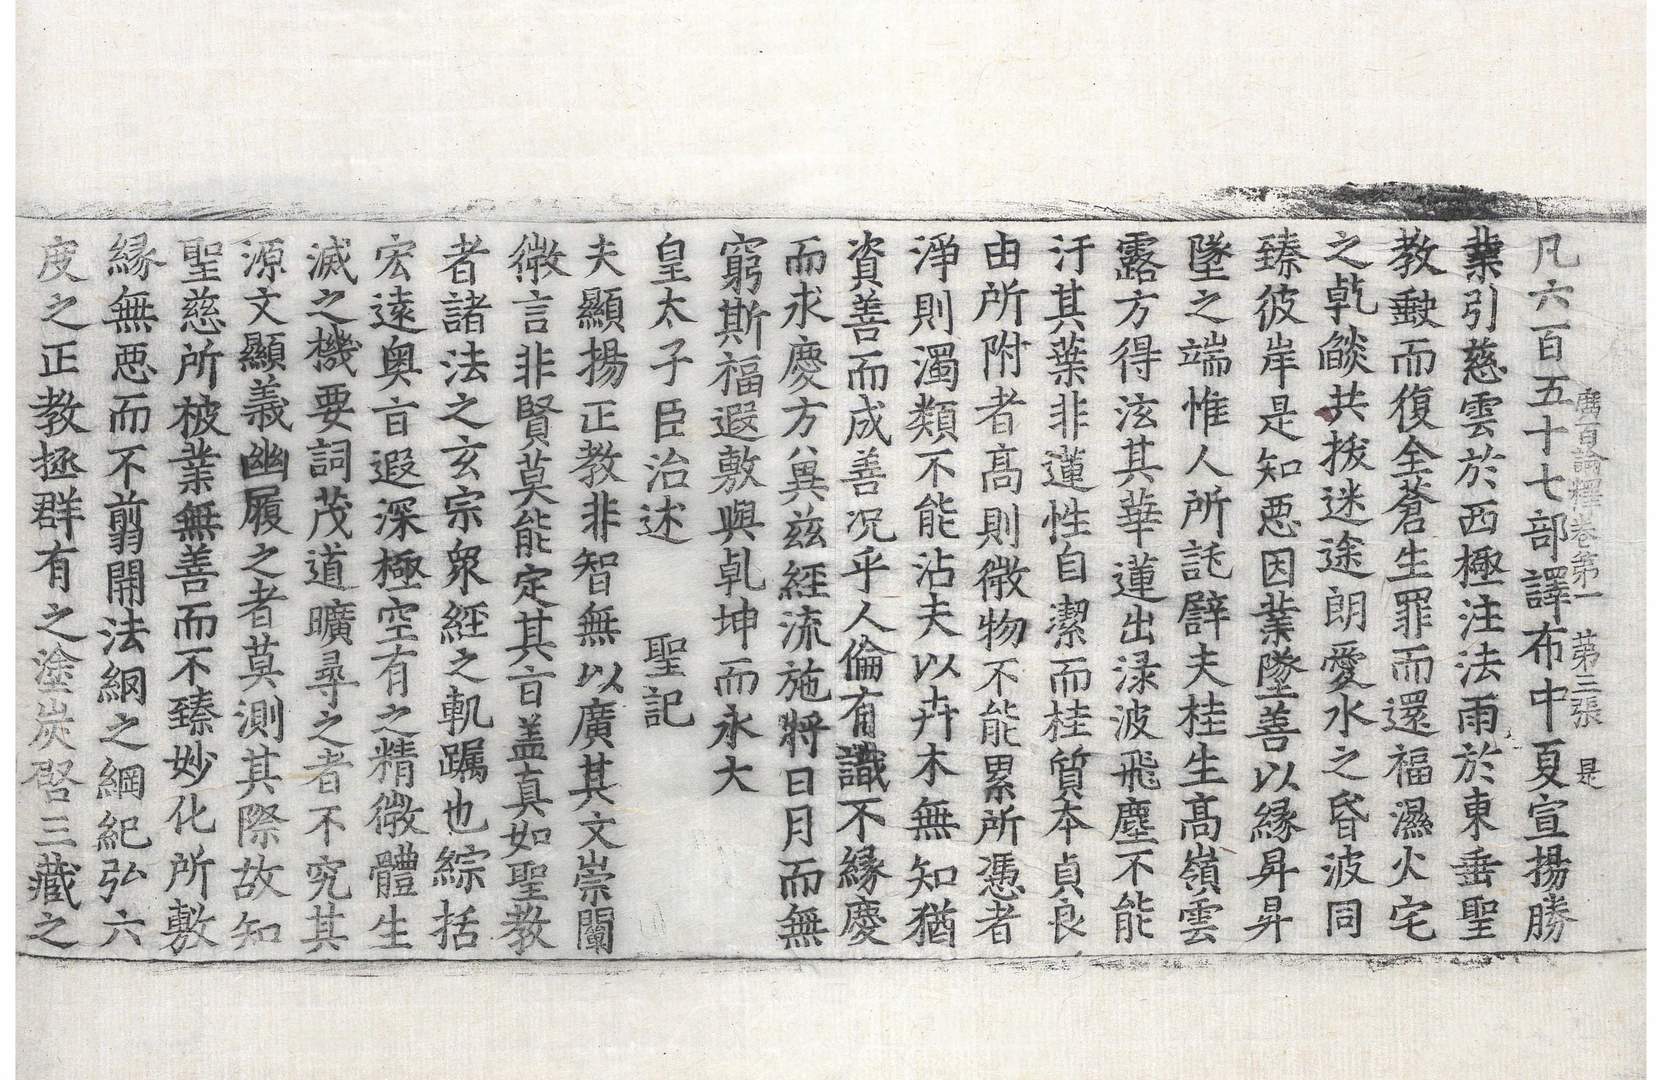 廣百論釋卷第一 第三張 是
凡六百五十七部譯布中夏宣揚勝
業引慈雲於西極注法雨於東垂聖
教缺而復全蒼生罪而還福濕火宅
之乾燄共拔迷途朗愛水之昏波同
臻彼岸是知惡因業墜善以緣昇昇
墜之端惟人所託譬夫桂生高嶺雲
露方得泫其華蓮出淥波飛塵不能
汙其葉非蓮性自潔而桂質本貞良
由所附者高則微物不能累所憑者
淨則濁類不能沾夫以卉木無知猶
資善而成善况乎人倫有識不緣慶
而求慶方兾茲經流施將日月而無
窮斯福遐敷與乹坤而永大
皇太子臣治述 聖記
夫顯揚正教非智無以廣其文崇闡
微言非賢莫能定其旨盖真如聖教
者諸法之玄宗衆經之軌躅也綜括
宏遠奧旨遐深極空有之精微體生
滅之機要詞茂道曠尋之者不究其
源文顯義幽履之者莫測其際故知
聖慈所被業無善而不臻妙化所敷
緣無惡而不翦開法網之綱紀弘六
度之正教拯群有之塗炭啓三藏之